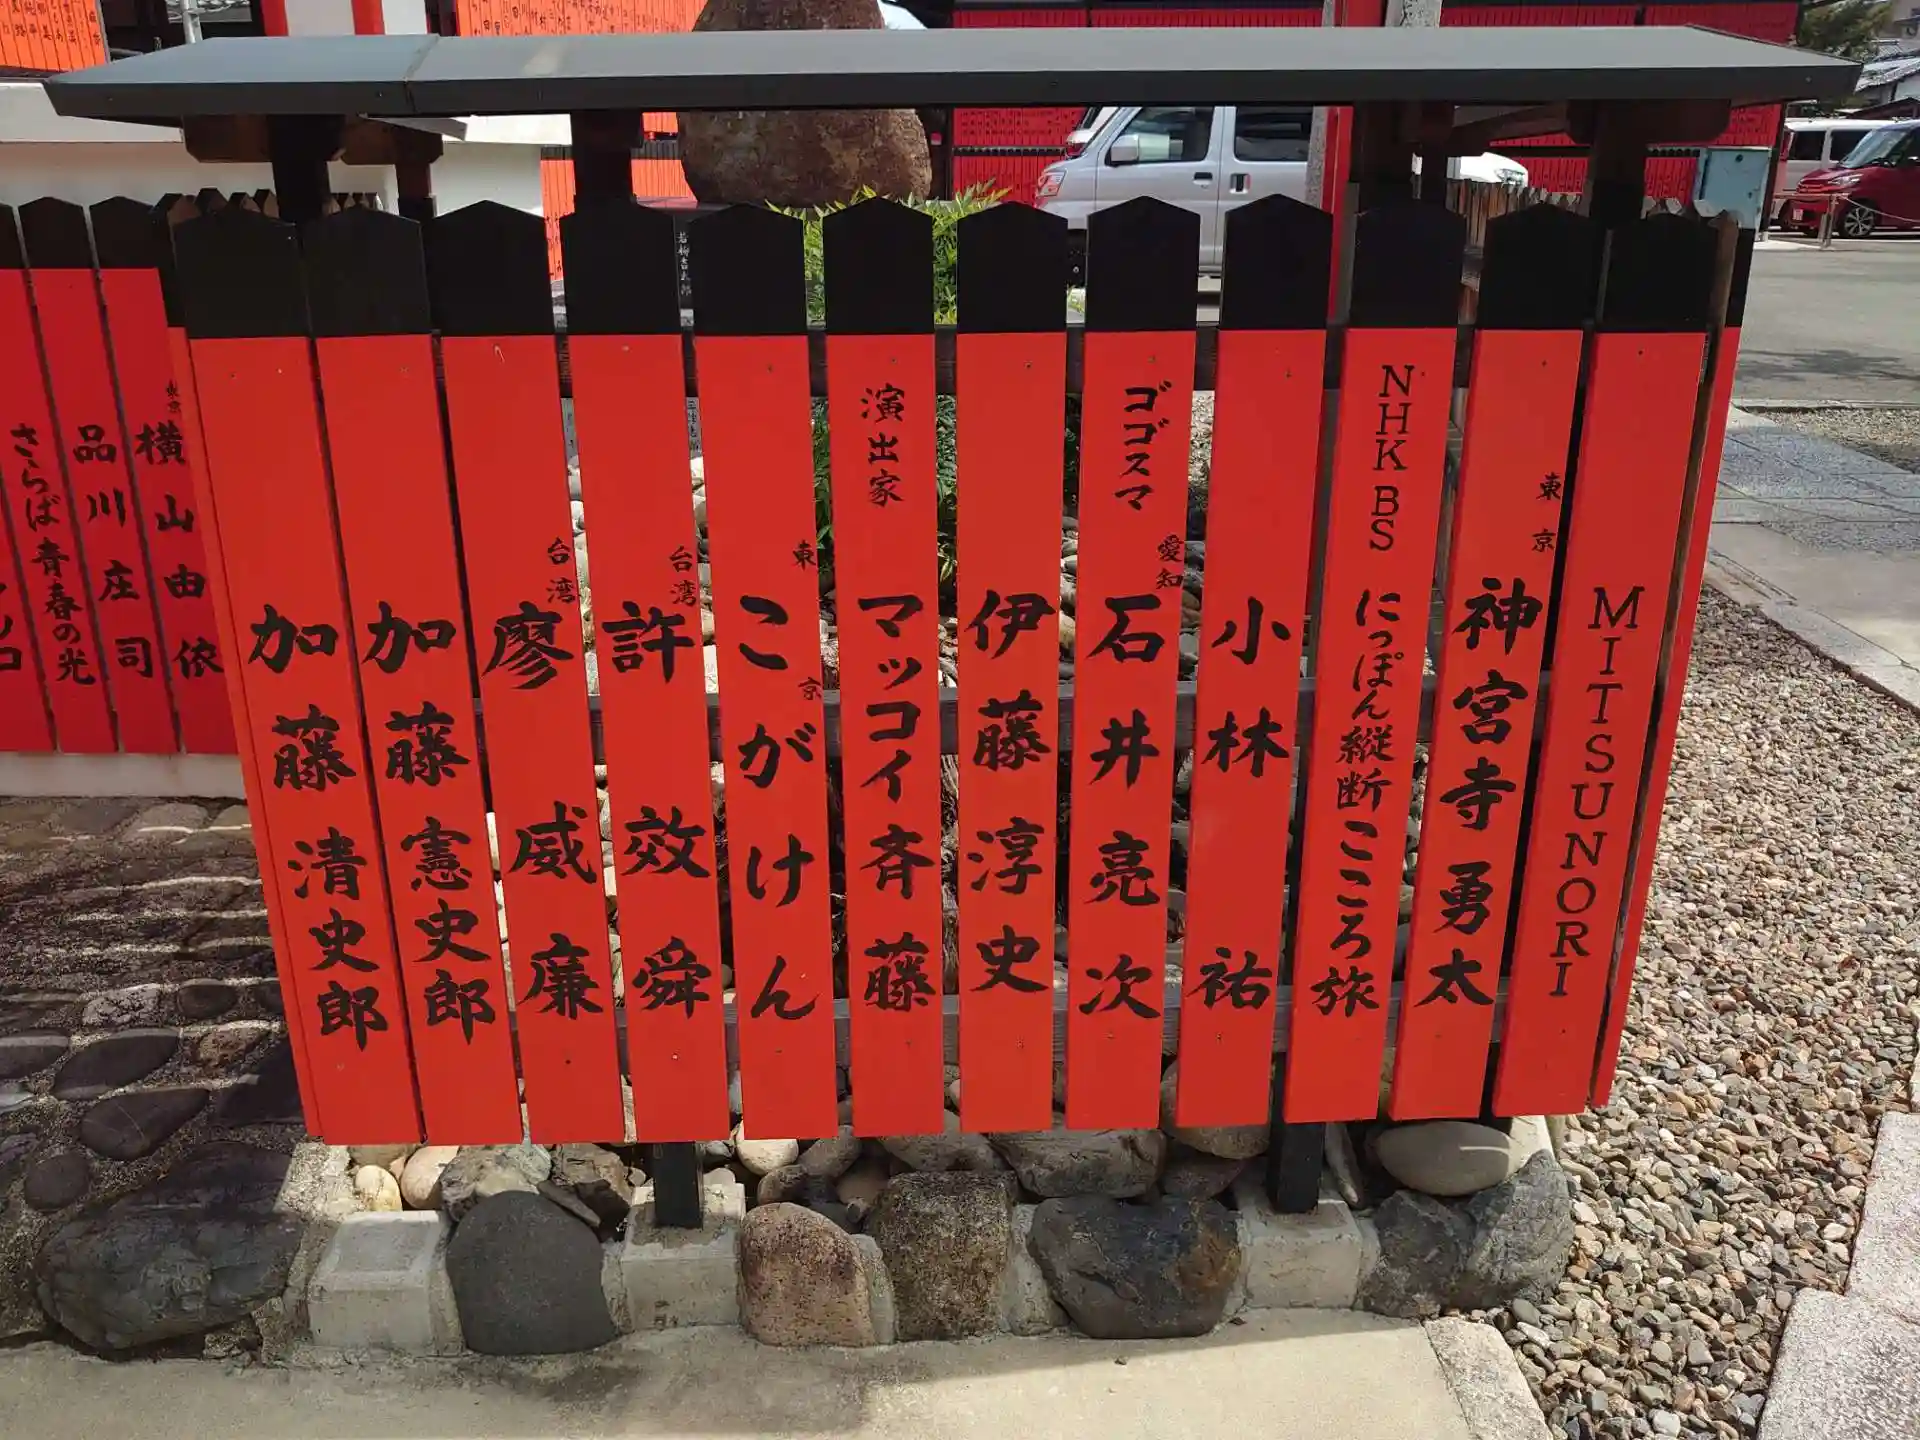 MITSUNORI
東京 神宮寺勇太
NHK BS にっぽん縦断こころ旅
小林祐
ゴゴスマ 愛知 石井亮次
伊藤淳史
演出家 マッコイ斉藤
東京 こがけん
台湾 許效舜
台湾 廖威廉
加藤憲史郎
加藤清史郎
東京 横山由依
品川庄司
さらば青春の光